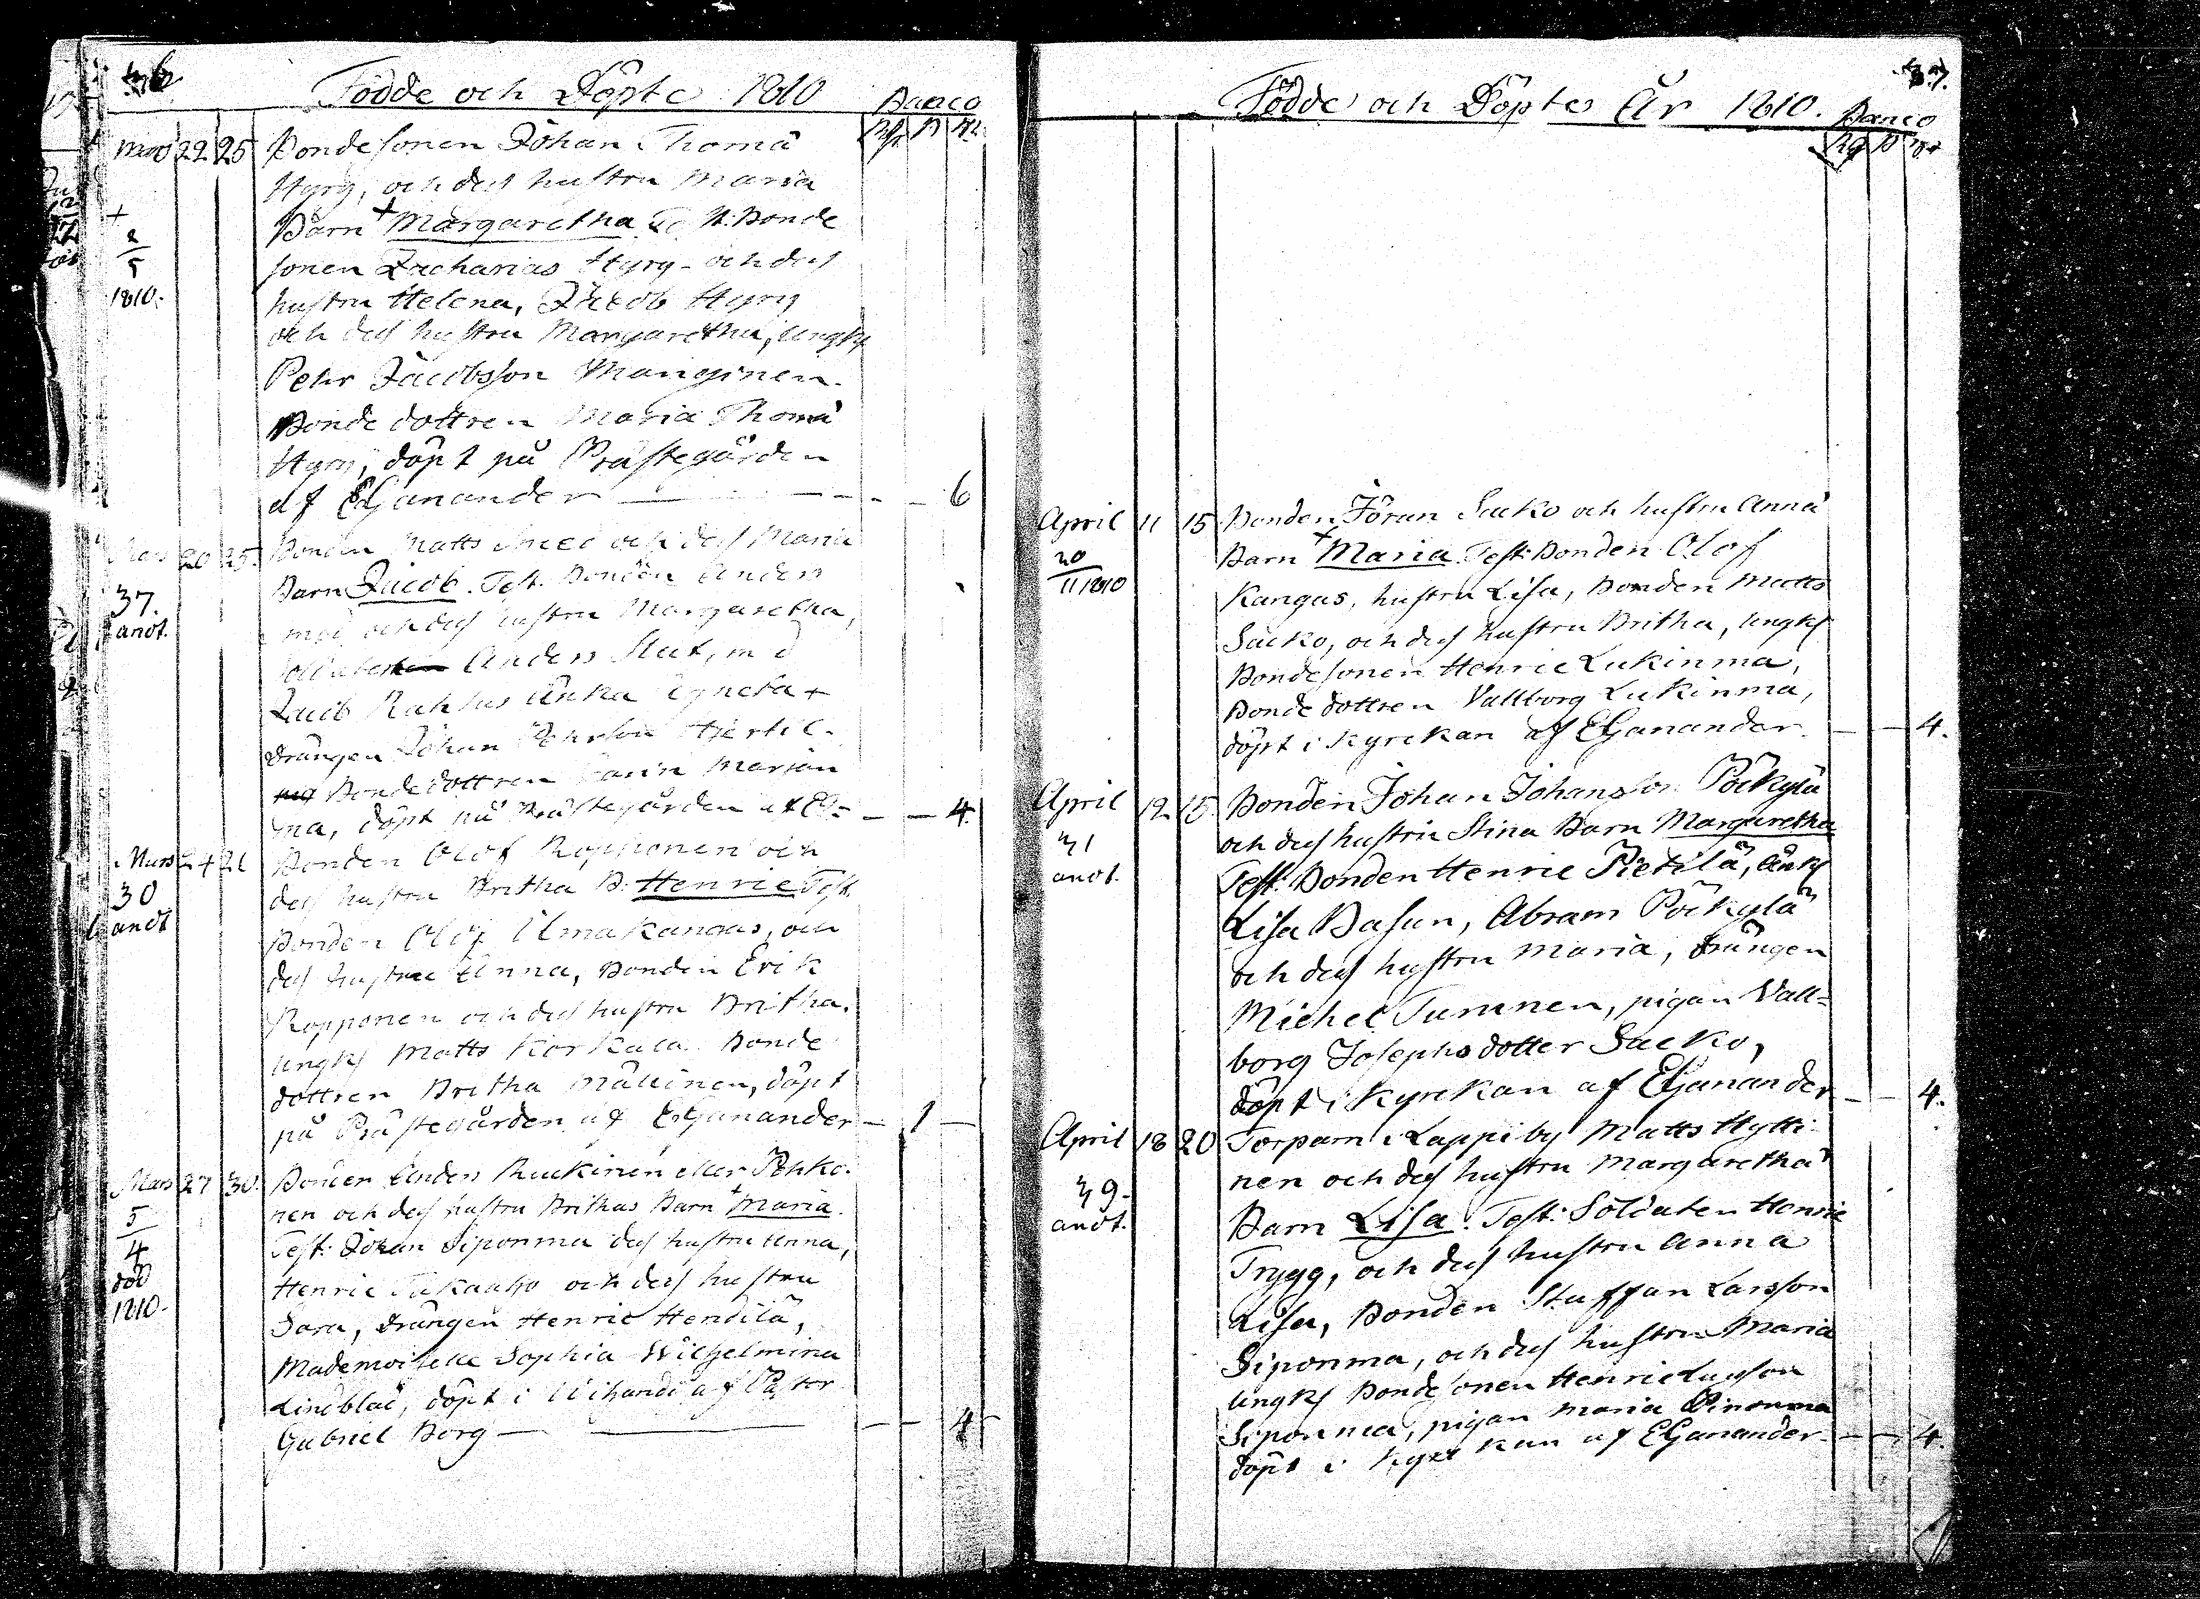 36
Födde och Döpte 1810
Banco
Mars 22 25 Bondesonen Johan Thomä
Hyry, och des hustru Maria
+ Barn + Margaretha Test. Bonde
2/5 sonen Zacharias Hyry och des
1810. hustru Helena, Jacob Hyry
och des hustru Margaretha, ungk
Pehr Jacobsson Manginen.
Bonde dottren Maria Thomä
Hyry, döpt på Prästegården
af EGanander — 6
Mars 20 25. Bonden Matts och des Maria
37. Barn Jacob. Test. Bonden Anders
anot. och des hustru Margaretha,
Anders Slut, med
Jacob Rahkus Änka Agneta +
Drängen Johan
Bondedottren Marian
ma, döpt på Prästegården af EG — 4.
Mars 24 26 Bonden Olof Ropponen och
30 des hustru Britha B. Henric Test
anot Bonden Olof Ulmakangas, och
des hustru Anna, Bonden Erik
Ropponen och des hustru Britha.
ungk Matts Korkala Bonde
dottren Britha Mällinen, döpt
på Prästegården af EGanander — 1 —
Mars 27 30. Bonden Anders Ruukinen eller
nen och des hustru Brithas Barn + Maria.
5/4 Test: Johan Siponma des hustru Anna,
död Henric och des hustru
1810. Sara, Drängen Henric Hendilä,
Mademoiselle Sophia Wilhelmina
Lindblad, döpt i Wihandi af Pastor
Gabriel Borg — 4
37.
Födde och Döpte År 1810.
Banco
April 11 15 Bonden Jöran Sacko och hustru Annä
20/11 1810 Barn + Maria. Test: Bonden Olof
Kangas, hustru Lisa, Bonden Matts
Sacko, och des hustru Britha, ungk
Bondesonen Henric Lukinma,
Bonde dottren Vallborg Lukinma,
döpt i Kyrckan af EGanander. — 4.
April 12 15 Bonden Johan Johansson Pöckylä
31 och des hustru Stina Barn Margaretha
anot. Test. Bonden Henric Pietilä, änk
Lisa Basun, Abram Pöckylä
och des hustru Maria, drängen
Michel Turunen, pigan Vall-
borg Josephsdotter Sacko,
döpt i Kyrckan af EGanander — 4.
April 18 20 Torparn i Lappi by Matts Hytti-
nen och des hustru Margaretha
39. Barn Lisa. Test: Soldaten Henric
anot. Trygg, och des hustru Anna
Lisa, Bonden Staffan Larsson
Siponma, och des hustru Maria
ungk Bondesonen Henric Larsson
Siponma, pigan Maria Siponma
döpt i Kyrckan af EGanander. — 4.